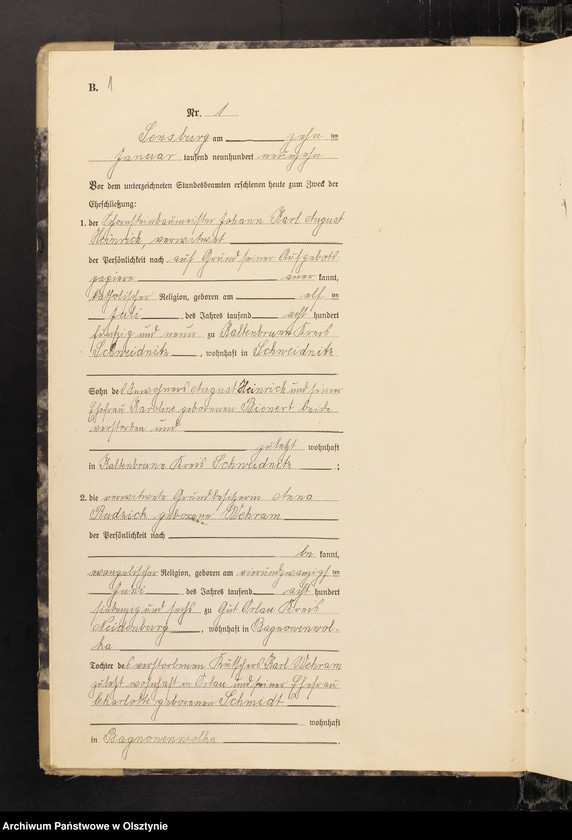 B. 1
Nr. 1
Sensburg am zehn ten
Januar tausend neunhundert neunzehn
Vor dem unterzeichneten Standesbeamten erschienen heute zum Zweck der
Eheschließung:
1. der Schornsteinbaumeister Johann Karl August
Heinrich, verwitwet
der Persönlichkeit nach auf Grund seiner Aufgebots
papiere aner kannt,
katholischer Religion, geboren am elf ten
Juli des Jahres tausend acht hundert
fünfzig und neun zu Kaltenbrunn Kreis
Schweidnitz, wohnhaft in Schweidnitz
Sohn des Einwohners August Heinrich und seiner
Ehefrau Karoline geborenen Bienert beide
verstorben und
zuletzt wohnhaft
in Kaltenbrunn Kreis Schweidnitz ;
2. die verwitwete Grundbesitzerin Anna
Rudzick geborene Wehram
der Persönlichkeit nach
be kannt,
evangelischer Religion, geboren am vierundzwanzigs ten
Juni des Jahres tausend acht hundert
siebenzig und sechs zu Gut Orlau Kreis
Neidenburg, wohnhaft in Bagnowenwol-
ka
Tochter des verstorbenen Kutschers Karl Wehram
zuletzt wohnhaft in Orlau und seiner Ehefrau
Charlotte geborenen Schmidt
wohnhaft
in Bagnowenwolka.
Archiwum Państwowe w Olsztynie